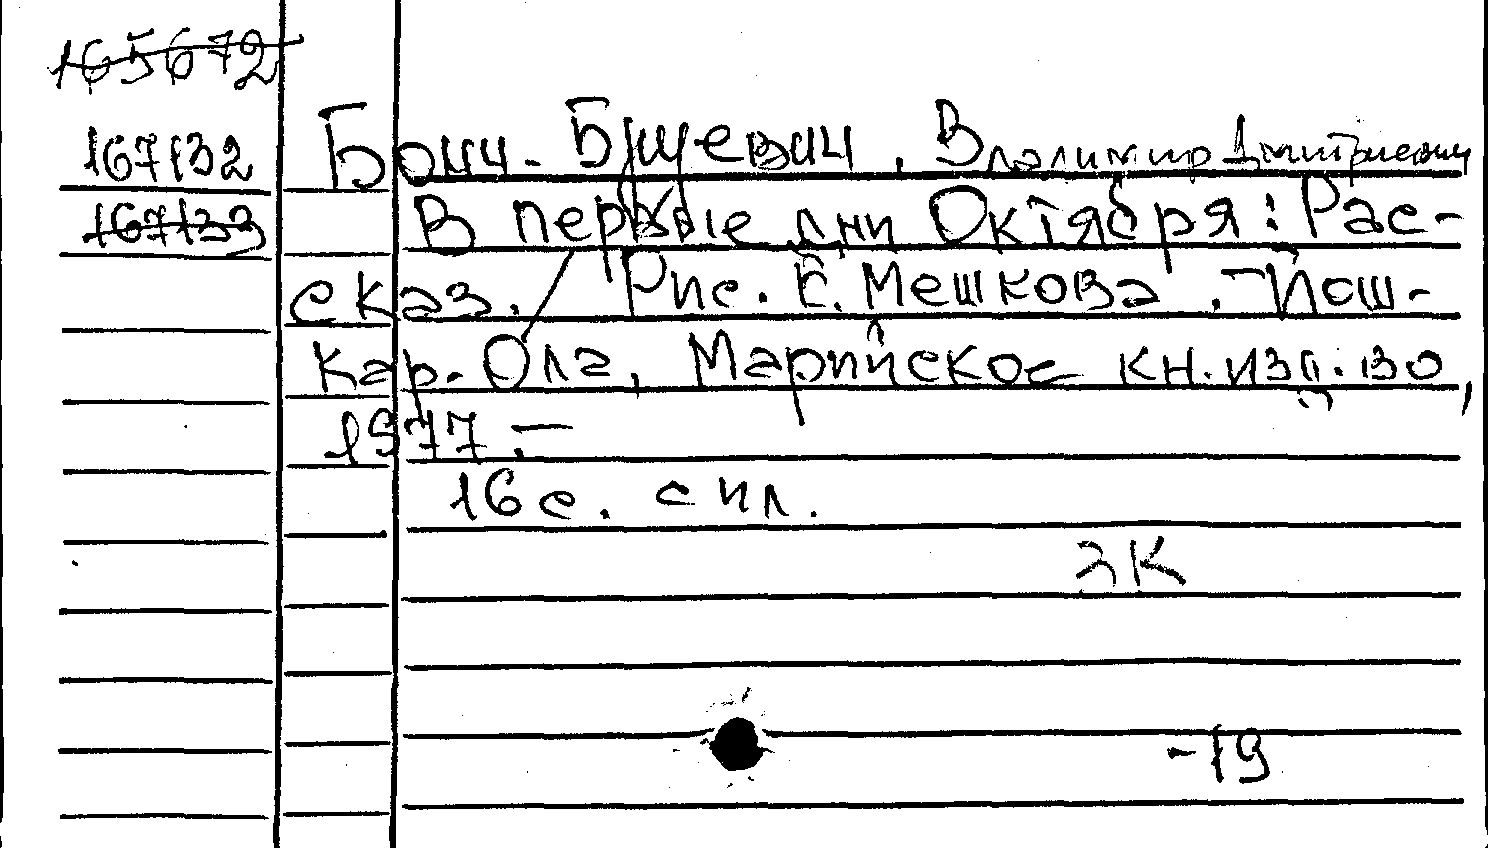 165672
167132 Бонч-Бруевич, Владимир Дмитриевич
167133 В первые дни Октября: Рас-
сказ. Рис. Е. Мешкова. - Йош-
кар-Ола, Марийское кн. изд-во,
1977. -
16 с. с ил.
ЗК
-19